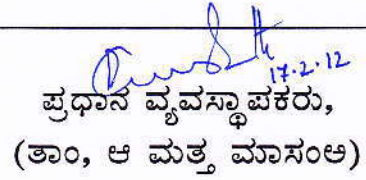 17.2.12
ಪ್ರಧಾನ ವ್ಯವಸ್ಥಾಪಕರು,
(ತಾಂ, ಆ ಮತ್ತ ಮಾಸಂಅ)